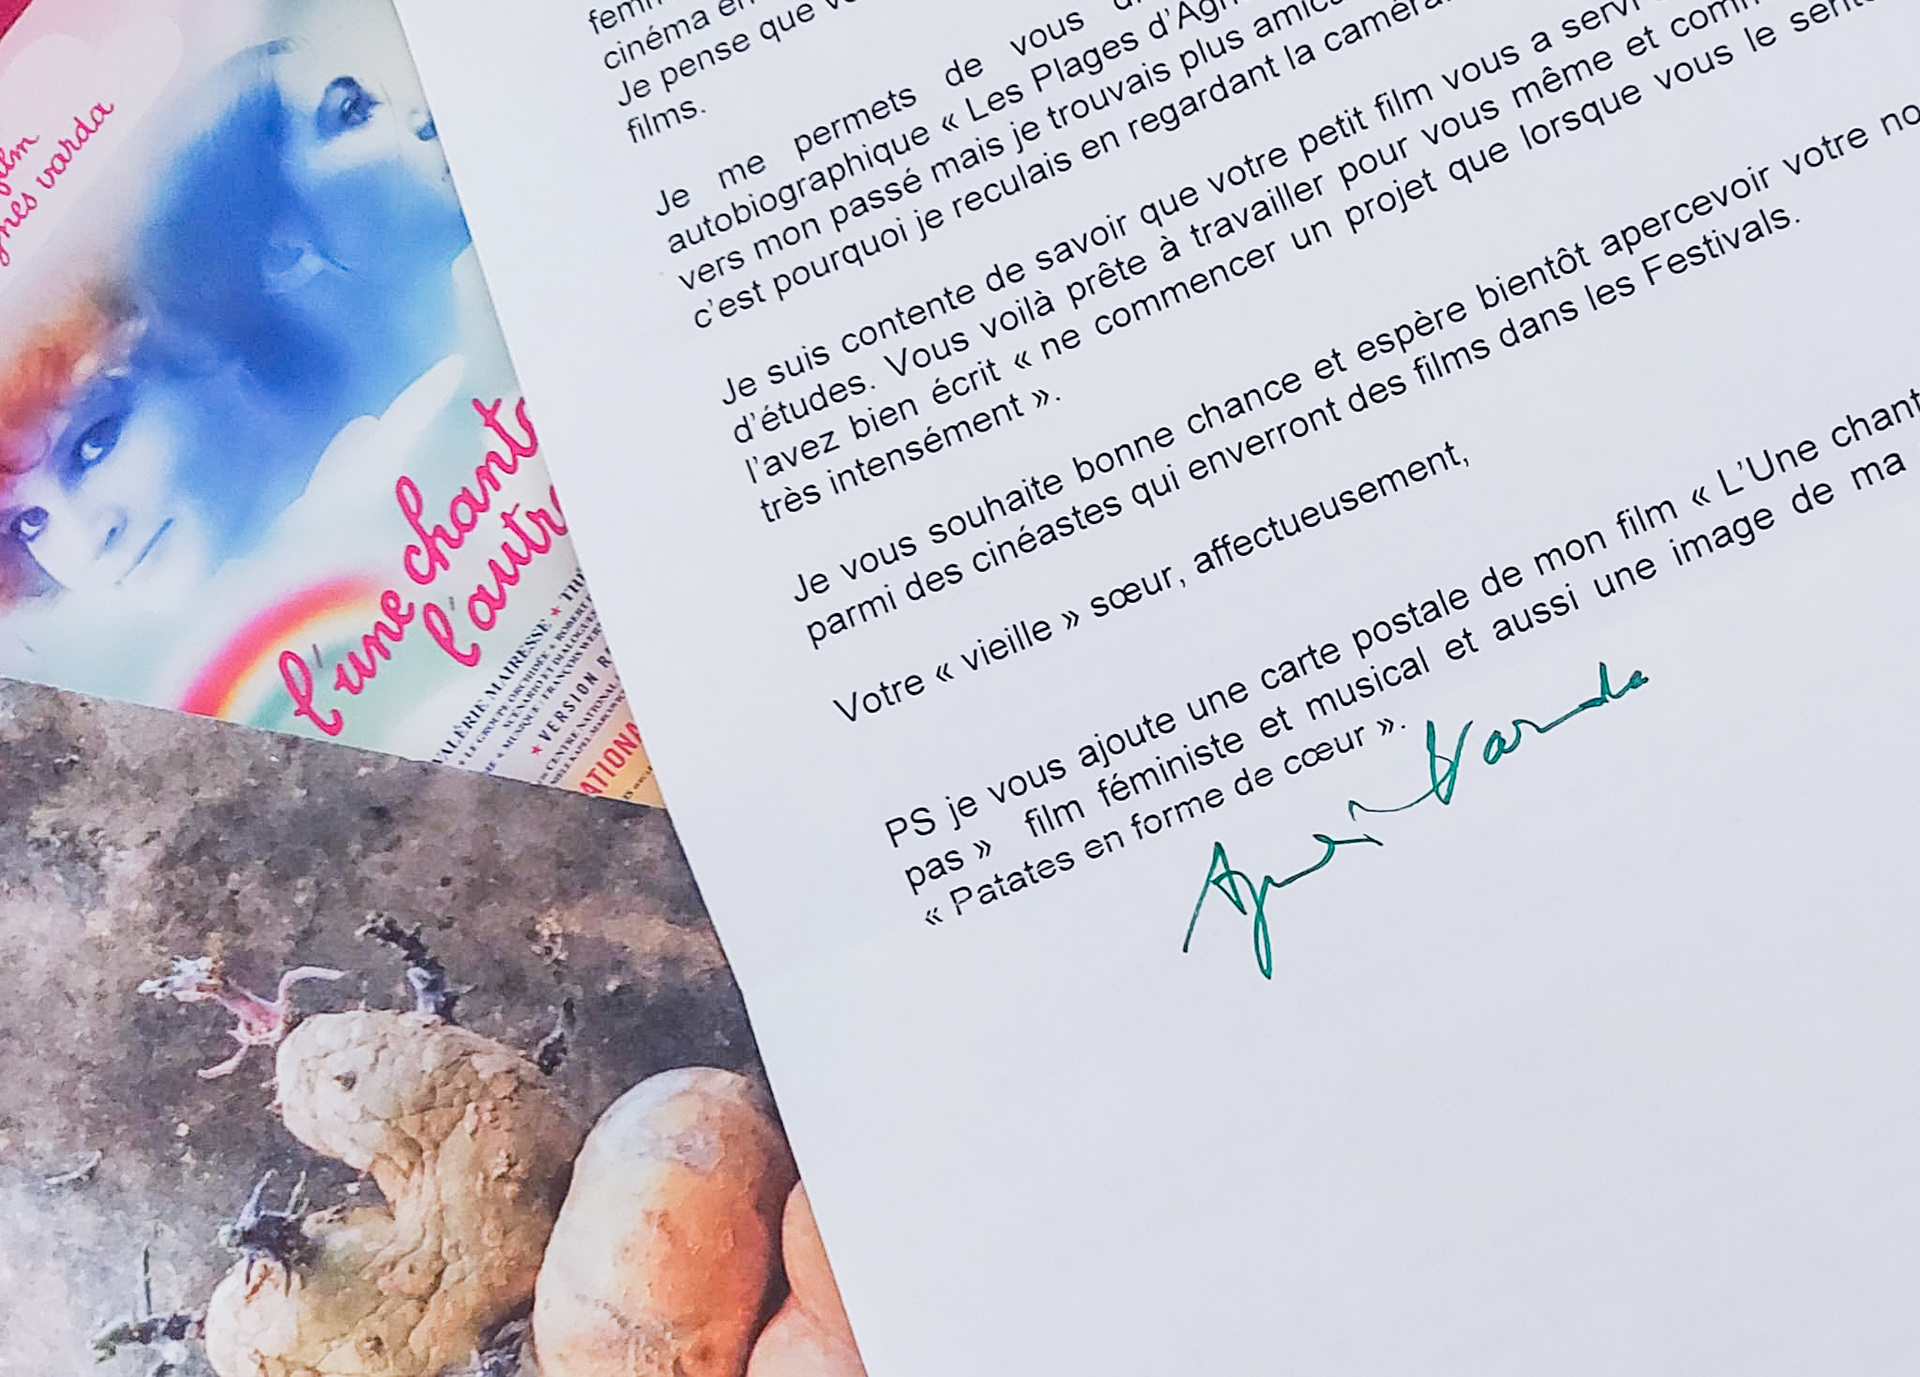 film
agnès varda
l'une chante
l'autre
VALÉRIE MAIRESSE ★ THÉ
LE GROUPE ORCHIDÉE ★ ROBERT
SCÉNARIO ET DIALOGUES
MUSIQUE FRANÇOIS WER
★ VERSION R
CENTRE NATIONAL
ATIONA
cinéma en
Je pense que
films.
Je me permets de vous
autobiographique « Les Plages d'Agn
vers mon passé mais je trouvais plus amica
c'est pourquoi je reculais en regardant la caméra.
Je suis contente de savoir que votre petit film vous a servi
d'études. Vous voilà prête à travailler pour vous même et com
l'avez bien écrit « ne commencer un projet que lorsque vous le sente
très intensément ».
Je vous souhaite bonne chance et espère bientôt apercevoir votre no
parmi des cinéastes qui enverront des films dans les Festivals.
Votre « vieille » sœur, affectueusement,
PS je vous ajoute une carte postale de mon film « L'Une chant
pas » film féministe et musical et aussi une image de ma
« Patates en forme de cœur ».
Agnès Varda